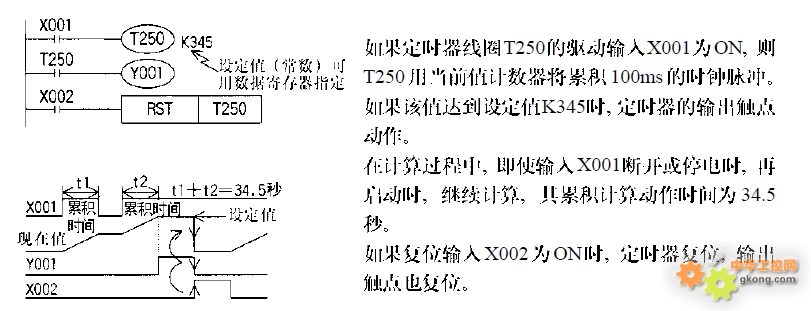 X001
T250
K345
T250
Y001
设定值（常数）可
用数据寄存器指定
X002
RST
T250
t1
t2
t1＋t2＝34.5秒
X001
累积
时间
累积时间
设定值
现在值
Y001
X002
如果定时器线圈T250的驱动输入X001为ON, 则
T250用当前值计数器将累积100ms的时钟脉冲。
如果该值达到设定值K345时, 定时器的输出触点
动作。
在计算过程中, 即使输入X001断开或停电时, 再
启动时, 继续计算, 其累积计算动作时间为34.5
秒。
如果复位输入X002为ON时, 定时器复位, 输出
触点也复位。
中华工控网
gkong.com